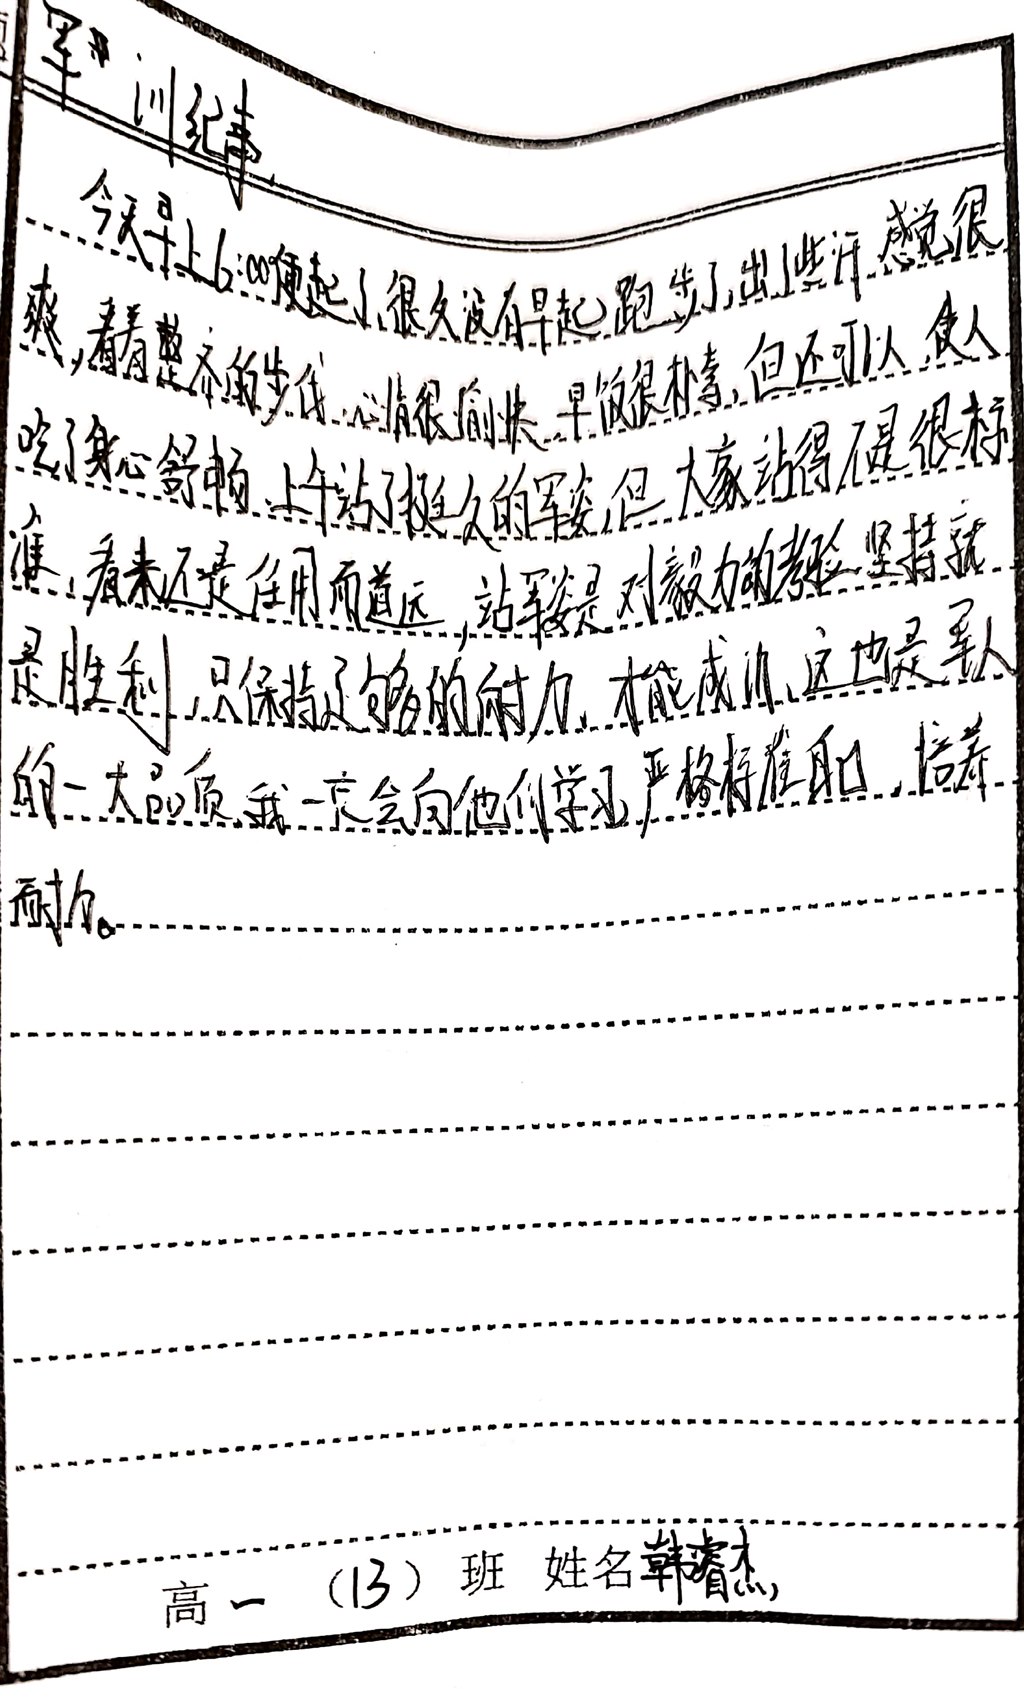 军训纪事
今天早上6:00便起了,很久没有早起跑步了,出了些汗,感觉很
爽,看着整齐的步伐,心情很愉快,早饭很朴素,但还可以,食人
吃了身心舒畅,上午站了挺久的军姿,但大家站得不是很标
准,看来还是任用而道远,站军姿是对毅力的考验,坚持就
是胜利,只保持足够的耐力,才能成功,这也是军人
的一大品质,我一定会向他们学习,严格标准自己,培养
耐力。
高一(13)班 姓名韩睿杰